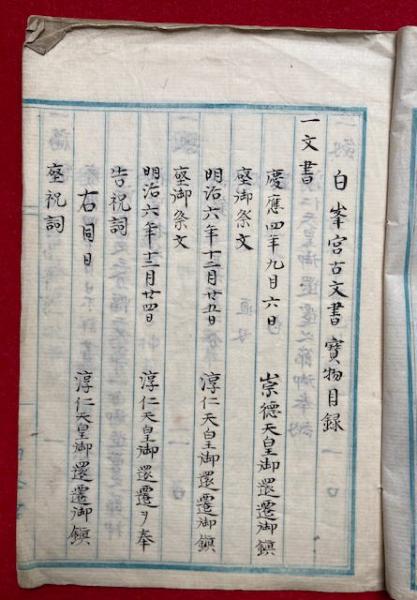 白峯宮古文書寳物目録
一文書
慶應四年九月六日 崇德天皇御還遷御鎮
座御祭文
明治六年十二月廿五日 淳仁天皇御還遷御鎮
座御祭文
明治六年十二月廿四日 淳仁天皇御還遷ヲ奉
告祝詞
右同日 淳仁天皇御還遷御鎮
座祝詞